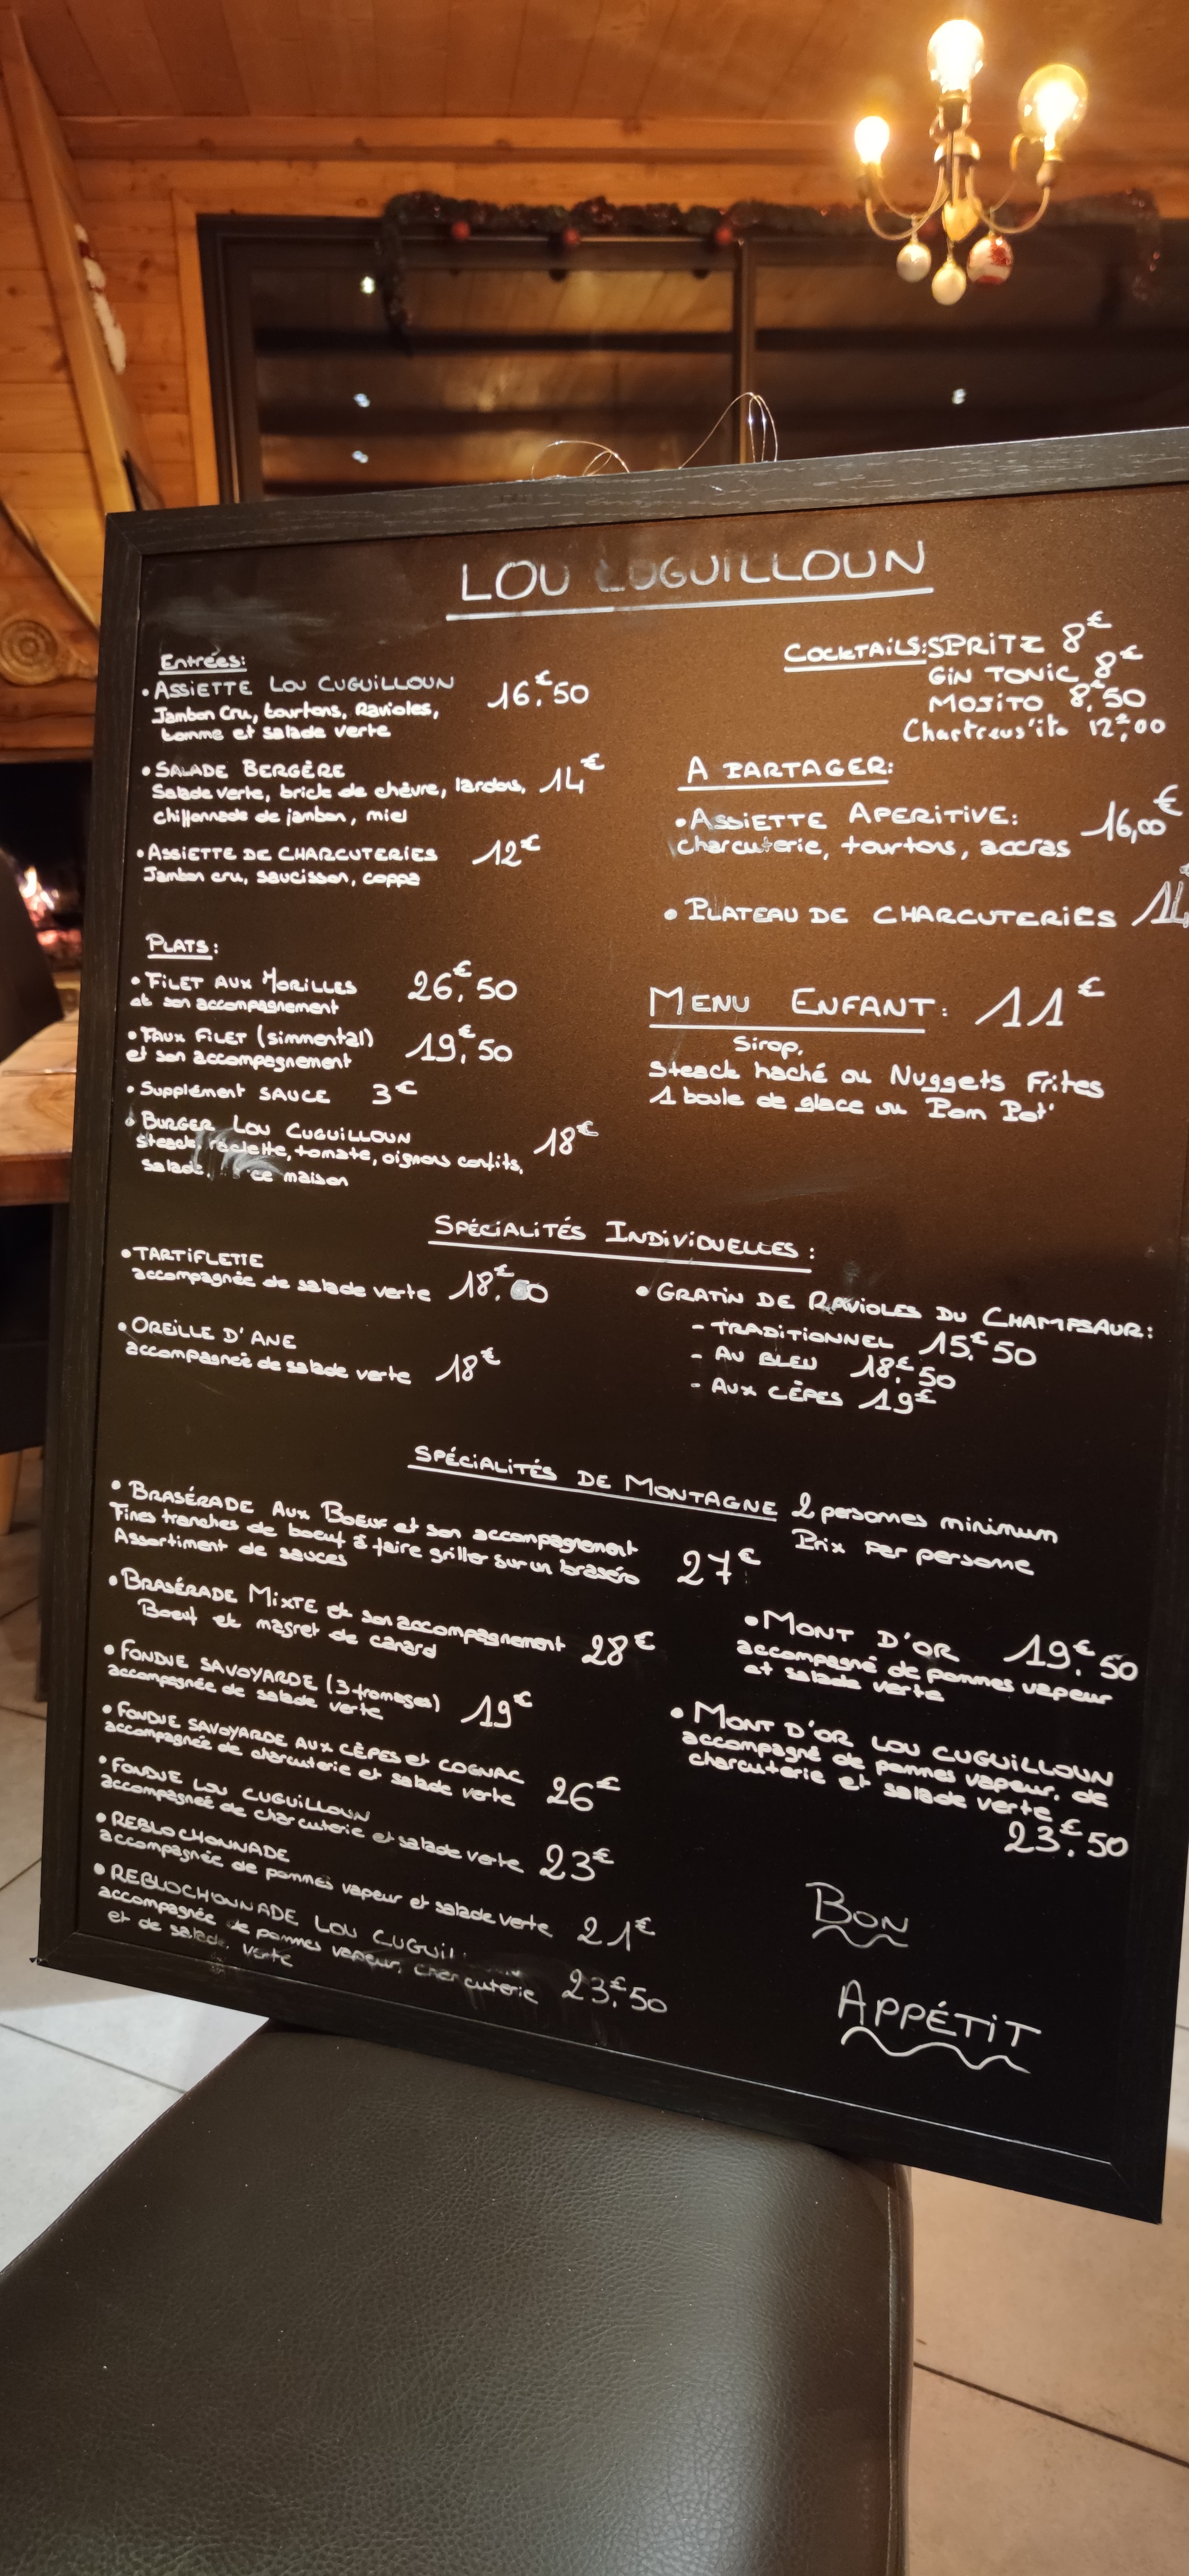 LOU CUGUILLOUN
Entrées:
• ASSIETTE LOU CUGUILLOUN 16,€50
Jambon Cru, tourtons, Ravioles,
tomme et salade verte
• SALADE BERGÈRE 14€
Salade verte, brick de chèvre, lardons,
chiffonnade de jambon, miel
• ASSIETTE DE CHARCUTERIES 12€
Jambon cru, saucisson, coppa
PLATS:
• FILET AUX MORILLES 26,€50
et son accompagnement
• FAUX FILET (simmental) 19,€50
et son accompagnement
• Supplément SAUCE 3€
• BURGER LOU CUGUILLOUN 18€
steack, raclette, tomate, oignons confits,
salade, maison
COCKTAILS: SPRITZ 8€
GIN TONIC 8€
MOJITO 8,€50
Chartreus'ito 12,€00
A PARTAGER:
• ASSIETTE APERITIVE: 16,00€
charcuterie, tourtons, accras
• PLATEAU DE CHARCUTERIES
MENU ENFANT: 11€
Sirop,
Steack haché ou Nuggets Frites
1 boule de glace ou Pom Pot'
SPÉCIALITÉS INDIVIDUELLES:
• TARTIFLETTE
accompagnée de salade verte
• OREILLE D'ANE
accompagnée de salade verte 18€
• GRATIN DE RAVIOLES DU CHAMPSAUR:
- TRADITIONNEL 15,€50
- AU BLEU 18,€50
- AUX CÈPES 19€
SPÉCIALITÉS DE MONTAGNE 2 personnes minimum
Prix par personne
• BRASÉRADE AUX BOEUF et son accompagnement
Fines tranches de boeuf à faire griller sur un braséro
Assortiment de sauces 27€
• BRASÉRADE MIXTE et son accompagnement 28€
Boeuf et magret de canard
• FONDUE SAVOYARDE (3 fromages) 19€
accompagnée de salade verte
• FONDUE SAVOYARDE AUX CÈPES et COGNAC
accompagnée de charcuterie et salade verte 26€
• FONDUE LOU CUGUILLOUN
accompagnée de charcuterie et salade verte 23€
• REBLOCHONNADE
accompagnée de pommes vapeur et salade verte 21€
• REBLOCHONNADE LOU
accompagnée de pommes vapeur, charcuterie 23,€50
et de salade verte
• MONT D'OR 19,€50
accompagné de pommes vapeur
et salade verte
• MONT D'OR LOU CUGUILLOUN
accompagné de pommes vapeur, de
charcuterie et salade verte
23,€50
BON
APPÉTIT